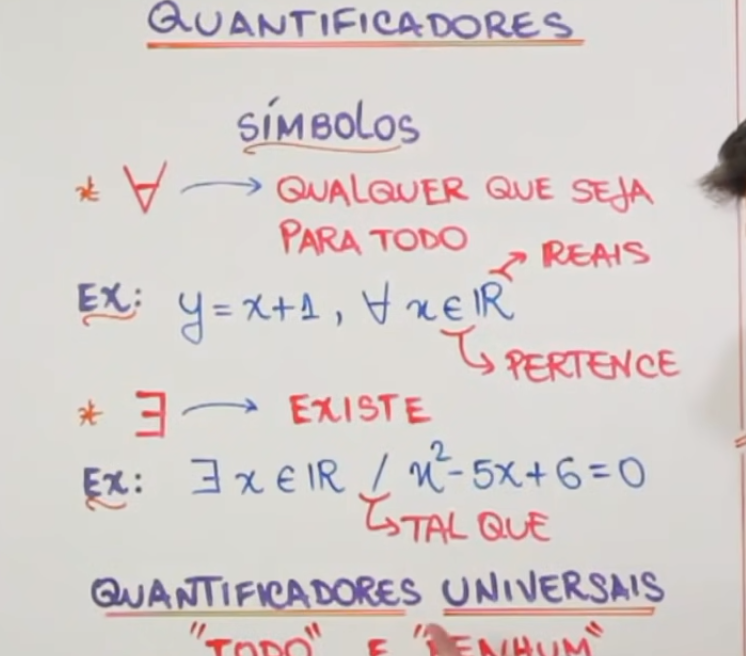 QUANTIFICADORES
SÍMBOLOS
* ∀ → QUALQUER QUE SEJA
PARA TODO
REAIS
EX: y = x+1, ∀ x ∈ ℝ
PERTENCE
* ∃ → EXISTE
EX: ∃ x ∈ ℝ / x² - 5x + 6 = 0
TAL QUE
QUANTIFICADORES UNIVERSAIS
"TODO" E "NENHUM"